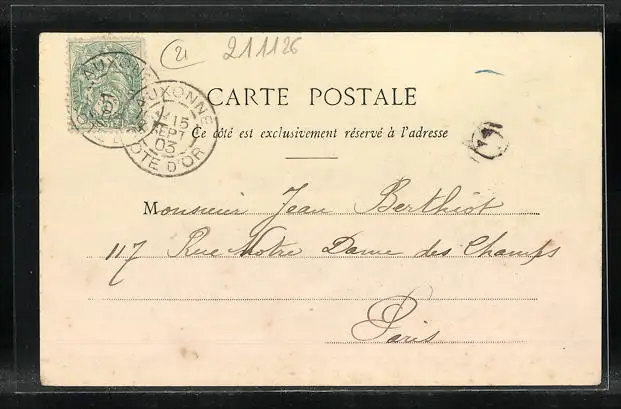 21 211126
AUXONNE
AUXONNE
15
SEPT
03
COTE D'OR
CARTE POSTALE
Ce côté est exclusivement réservé à l'adresse
Monsieur Jean Berthiot
117 Rue Notre Dame des Champs
Paris